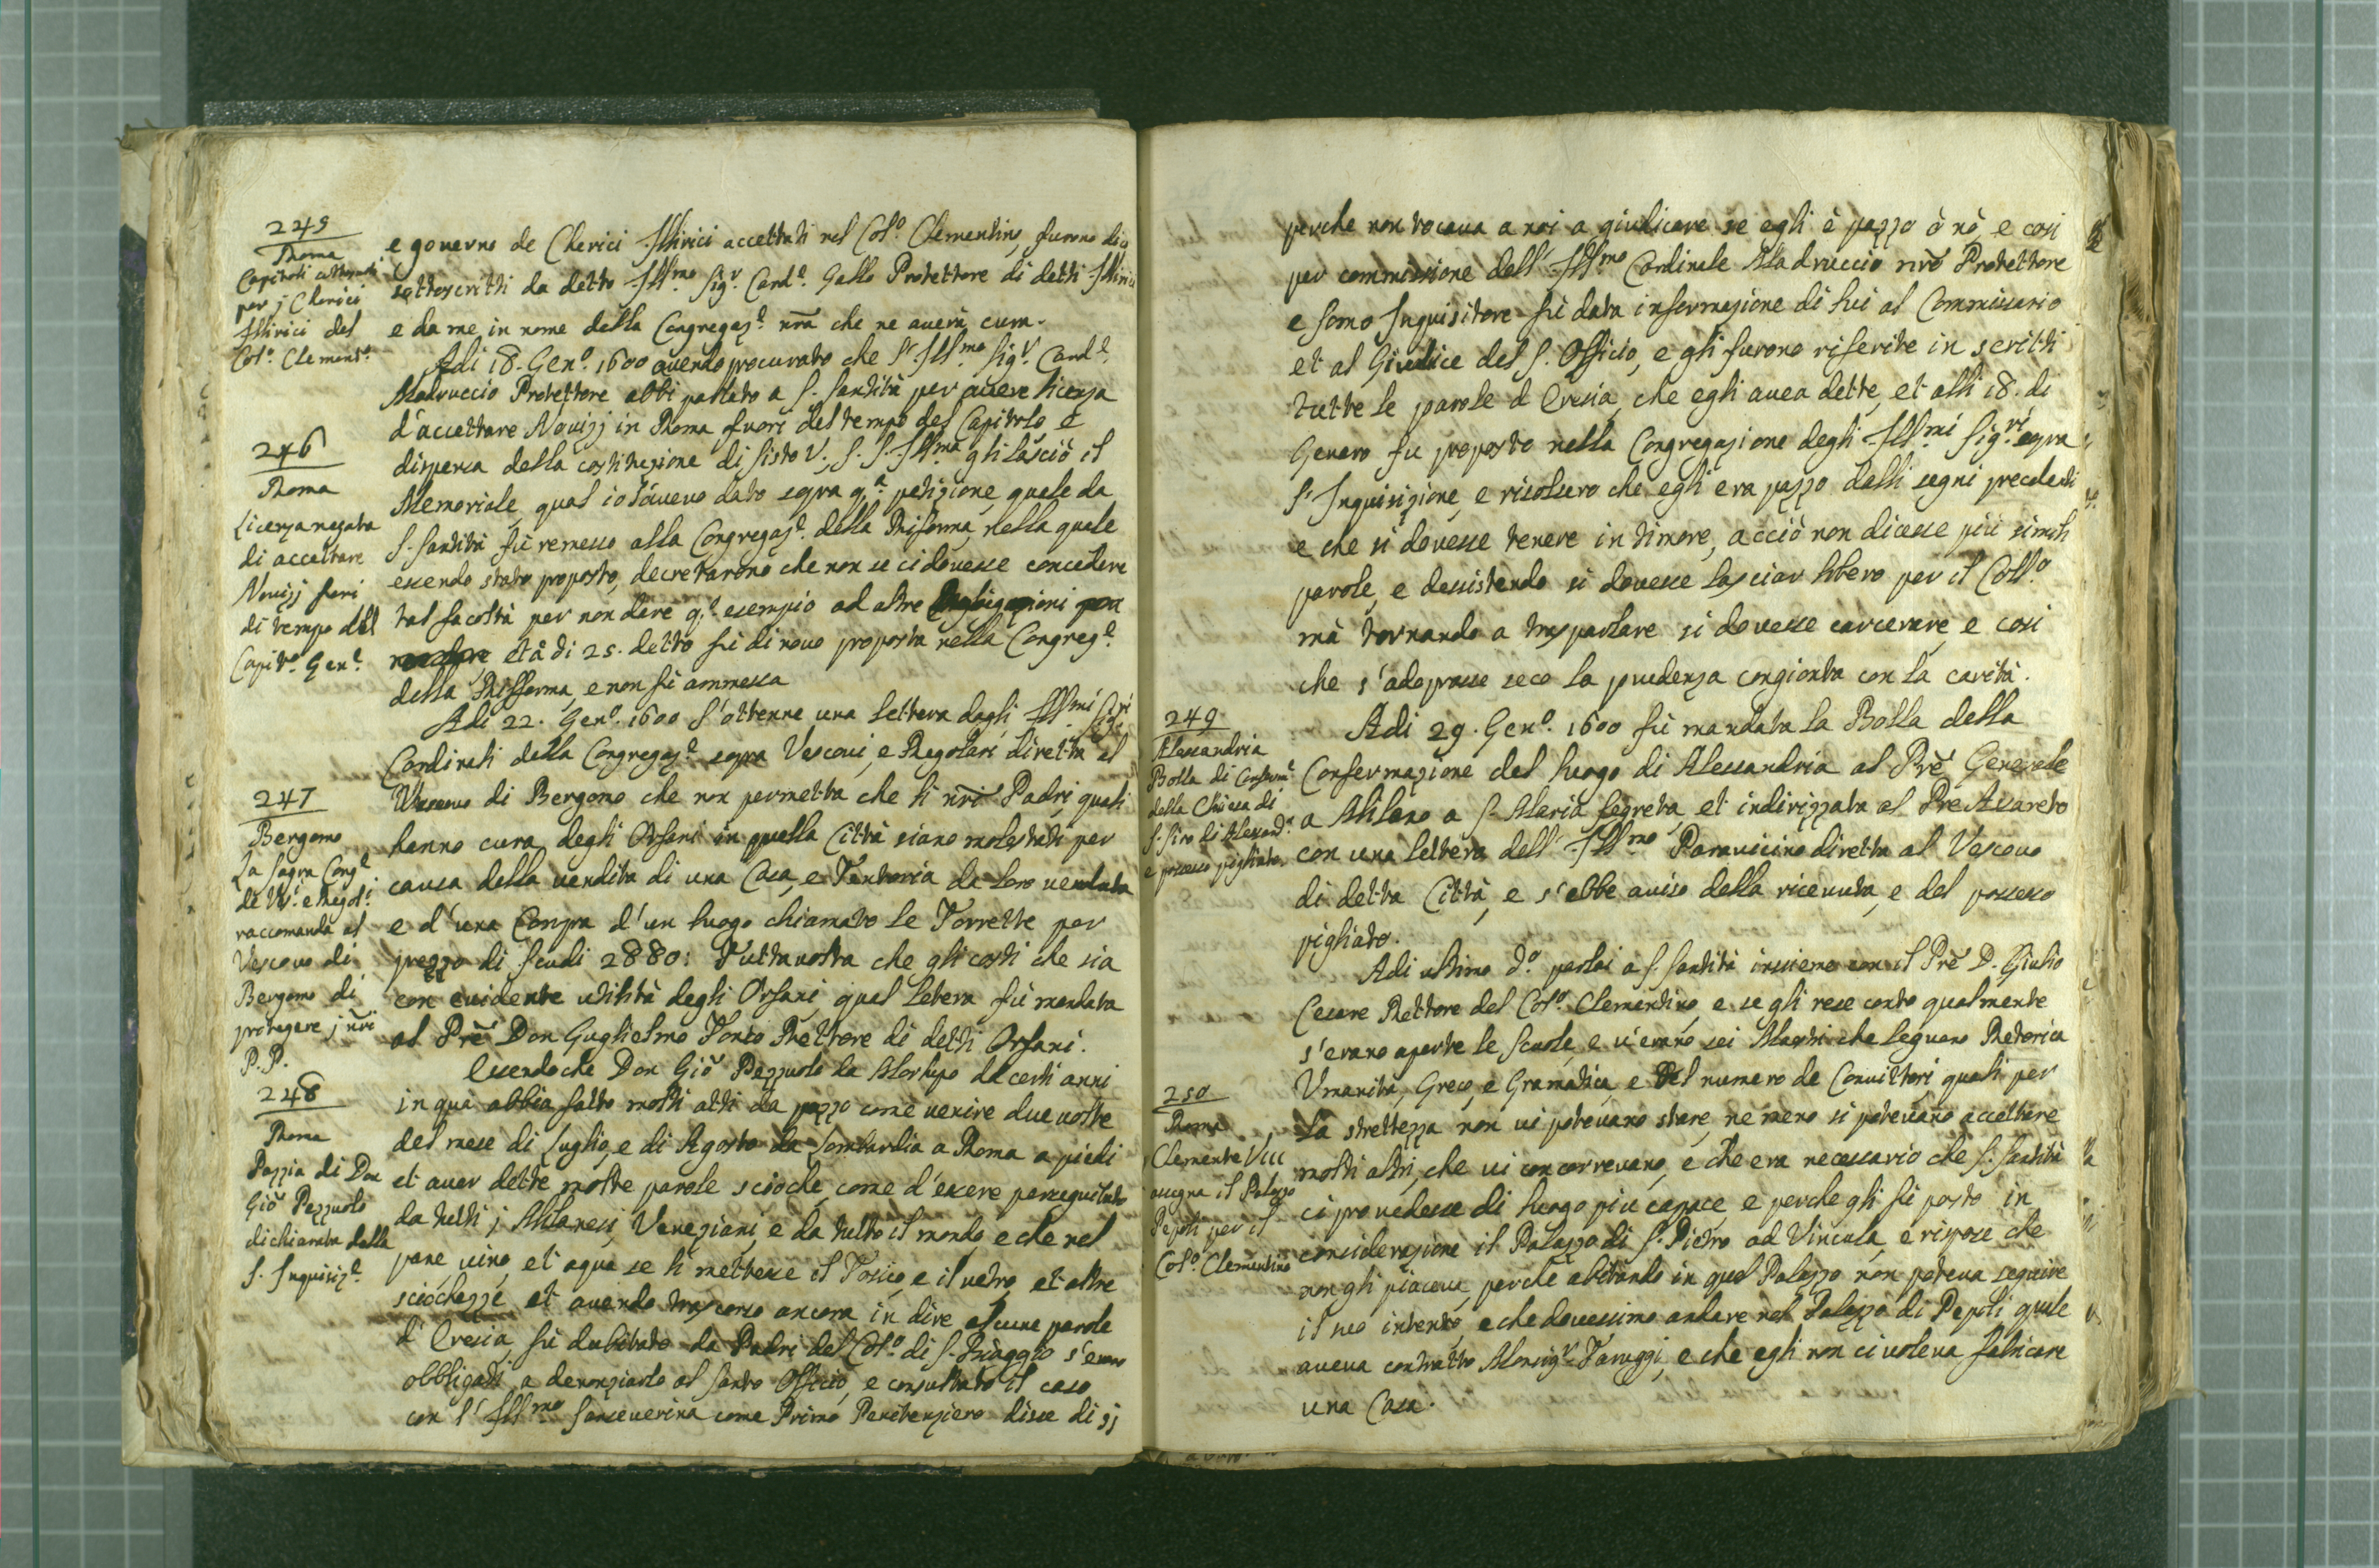 245
Roma
Capitoli
per j Clerici
Illirici del
Col.º Clement.º
e governo de Clerici Illirici accettati nel Col.º Clementino furono
sottoscritti da detto Ill.mo Sig.r Card.e Gallo Protettore di detti Illirici
e da me in nome della Congregaz.e nrã che ne averà cura.
Adi 18. Gen.º 1600 avendo procurato che l'Ill.mo Sig.r Card.e
Madruccio Protettore abbi parlato a S. Santità per avere licenza
d'accettare Novizj in Roma fuori del tempo del Capitolo e
246
Roma
Licenza negata
di accettare
Novizj fuori
di tempo del
Capit.º Gen.e
dispensa della costituzione di Sisto V., S. S. Ill.ma gli lasciò il
Memoriale qual io l'avevo dato sopra q.a petizione quale da
S. Santità fù remesso alla Congregaz.e della Rifforma, nella quale
essendo stato proposto, decretarono che non se ci dovesse concedere
tal facoltà per non dare q.º esempio ad altre
età di 25. detto fù di novo proposta nella Congreg.e
della Rifforma, e non fù ammessa
Adi 22. Gen.º 1600 s'ottenne una lettera dagli Ill.mi Sig.ri
Cardinali della Congregaz.e sopra Vescovi, e Regolari diretta al
247
Bergomo
La Sagra Cong.e
de V.i e Regol.i
raccomanda al
Vescovo di
Bergomo di
protegere j nrĩ
P.P.
Vescovo di Bergomo che non permetta che li nrĩ Padri quali
hanno cura degli Orfani in quella Città siano molestati per
causa della vendita di una Casa, e Tentoria da loro venduta
e d'una Compra d'un luogo chiamato le Torrette per
prezzo di Scudi 2880: Tuttavolta che gli costi che sia
con evidente utilità degli Orfani qual letera fù mandata
al Prẽ Don Guglielmo Tonso Rettore di detti Orfani.
248
Roma
Pazzia di Don
Giõ Pezzuolo
dichiarata dalla
S. Inquisiz.e
Essendoche Don Giõ Pezzuolo da certi anni
in quà abbia fatto molti atti da pazzo come venire due volte
del mese di Luglio, e di Agosto da Lombardia a Roma a piedi
et aver dette molte parole scioche, come d'essere perseguitato
da tutti j Milanesi, Veneziani, e da tutto il mondo, e che nel
pane vino, et aqua se li mettesse il Tosico, e il vetro, et altre
sciochezze, et avendo trascorso ancora in dire alcune parole
d'Eresia, fù dubitato da Padri del Col.º di S. Biaggio s'erano
obbligati a denonziarlo al Santo Officio, e consultato il caso
con l'Ill.mo Sanseverina come Primo Penitenziero disse di sj
perche non tocava a noi a giudicare se egli è pazzo ò nò, e cosi
per commissione dell'Ill.mo Cardinale Madruccio nrõ Protettore
e somo Inquisitore fù data informazione di lui al Commissario
et al Giudice del S. Officio, e gli furono riferite in scritti
tutte le parole d Eresia, che egli avea dette, et alli 18. di
Genaro fu proposto nella Congregazione degli Ill.mi Sig.ri sopra
l'Inquisizione, e risolsero che egli era pazzo dalli segni precedenti
e che si dovesse tenere in timore, acciò non dicesse più simili
parole, e dessistendo si dovesse lasciar libero per il Coll.º
mà tornando a trasparlare si dovesse carcerare, e cosi
che s'adoprasse seco la prudenza congionta con la carità.
249
Alessandria
Bolla di Conferm.e
della Chiesa di
S. Siro di Alessand.a
e possesso pigliato.
Adi 29. Gen.º 1600 fù mandata la Bolla della
Confermazione del luogo di Alessandria al Prẽ Generale
a Milano a S. Maria Segreta, et indirizzata al Prẽ Avareto
con una lettera dell'Ill.mo Paravicino diretta al Vescovo
di detta Città, e s'ebbe aviso della ricevuta, e del possesso
pigliato.
250
Roma
Clemente VIII
assegna il Palazzo
Pepoli per il
Col.º Clementino
Adi ultimo d.º parlai a S. Santità insieme con il Prẽ D. Giulio
Cesare Rettore del Col.º Clementino, e se gli rese conto qualmente
s'erano aperte le Scuole, e v'erano sei Mastri che legevano Retorica
Umanità, Greco, e Gramatica, e del numero de Convittori quali per
la strettezza non vi potevano stare, ne meno si potevano accettare
molti altri, che vi concorrevano, e che era necessario che S. Santità
ci provedesse di luogo più capace, e perche gli fù posto in
considerazione il Palazzo di S. Pietro ad Vincula, e rispose che
non gli piaceva, perche abitando in quel Palazzo non poteva seguire
il suo intento, e che dovessimo andare nel Palazzo di Pepoli quale
aveva contratto Monsig.r Tarugi, e che egli non ci voleva fabricare
una Casa.